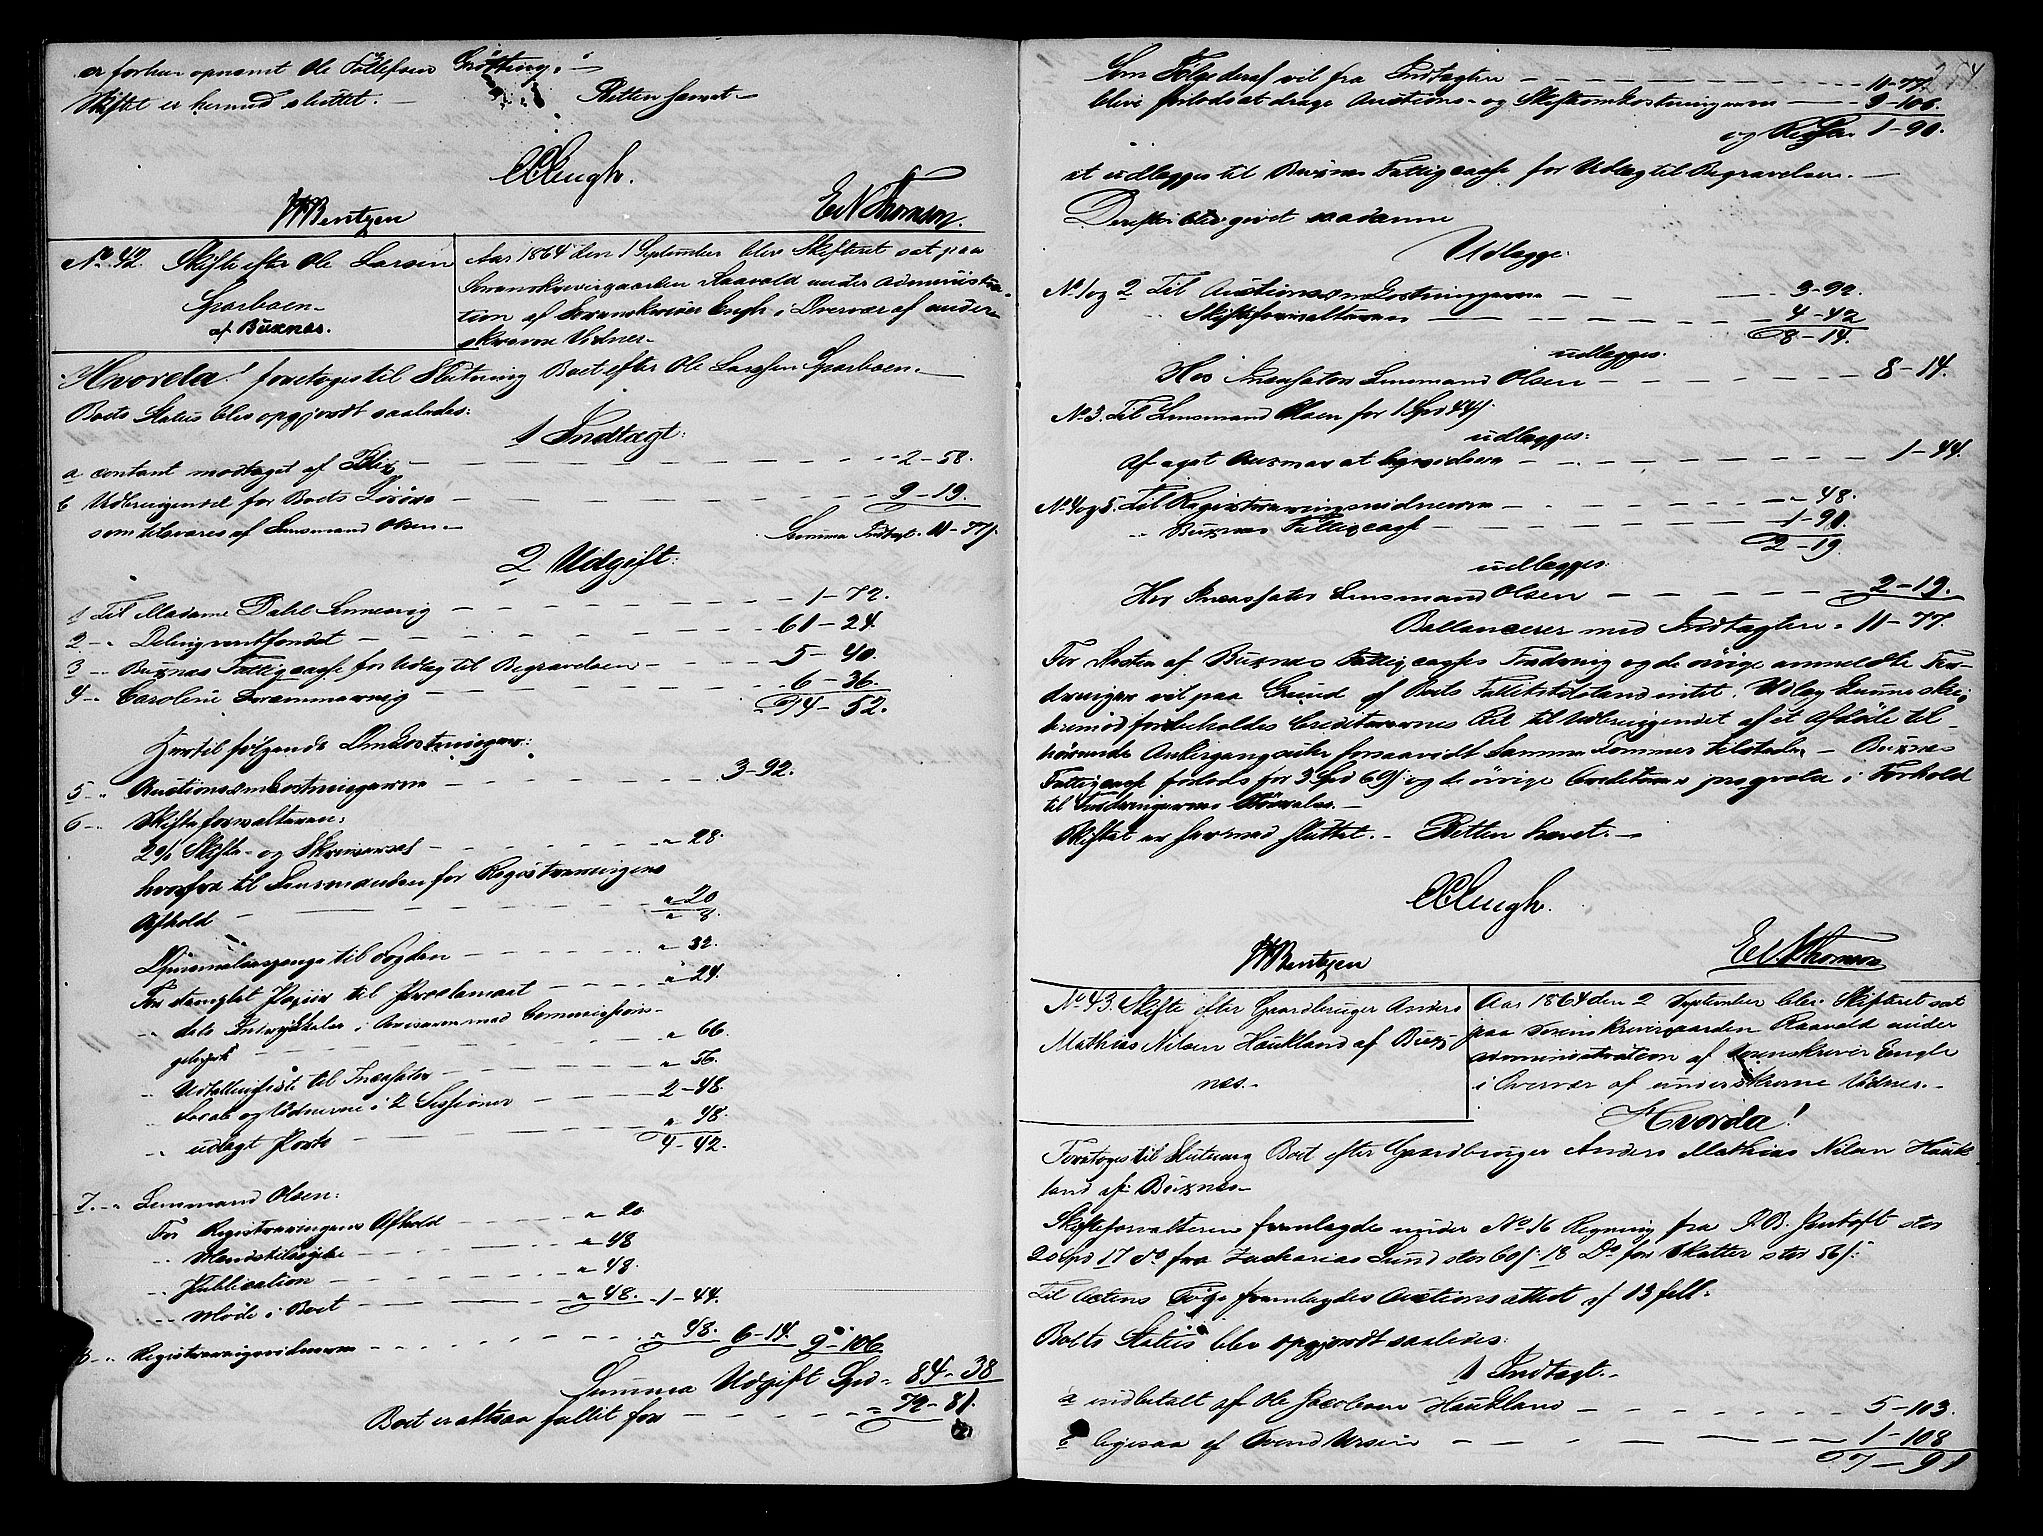 er forhen opnævnt Ole Tollefsen Grötting.
Skiftet er hermed sluttet. — Retten hævet —
CCEngh.
Bentzen E N Thomson.
No 42. Skifte efter Ole Larsen
Sparboen
af Buxnæs.
Aar 1864 den 1 September blev Skifteret sat paa
Sorenskrivergaarden Raavold under Administra-
tion af Sorenskriver Engh i Overvær af under-
skrevne Vidner.
Hvorda! foretoges til Slutning Boet efter Ole Larssen Sparboen.
Boets Status blev opgjordt saaledes:
1 Indtægt:
a contant modtaget af Blix — 2-58.
b Udbringendet for Boets Lösöre — 9-19.
som tilsvares af Lensmand Olsen — Summa Indtægt 11-77.
2 Udgift:
1 Til Madame Dahl — 1-72.
2 — 61-24
3 - Buxnæs Fattigcasse for Udlæg til Begravelsen — 5-40.
4 - Caroline — 6-36.
74-52.
Hertil følgende Omkostninger:
5 - Auctionsomkostningerne — 3-92.
6 - Skifteforvalteren:
2% Skifte- og Skriversal — 28.
hvorfra til Lensmanden for Registreringens
Afhold — 20
8.
til Fogden — 32.
For stemplet Papiir til Proclamaet — 24.
dets Indrykkelse i Aviserne med Commissions-
gebyr — 66.
Udtallingliste til Incassator — 56
Locale og Vidnerne i 2 Sessioner — 2-48.
udlagt Porto — 48.
4-42.
7. - Lensmand Olsen:
For Registreringens Afhold — 20
— 48
Publication — 48.
Møde i Boet — 48. 1-44.
8 - Registreringsvidnerne — 48. 6-14. 9-106
Summa Udgift Spd 84-38
Boet er altsaa fallit for — 72-81.
Som Følge deraf vil fra Indtægten — 11-77.
blive forlods at drage Auctions- og Skifteomkostningerne — 9-106.
og Resten 1-90.
at udlægges til Buxnæs Fattigcasse for Udlæg til Begravelsen. —
Derefter blev givet saadanne
Udlægge:
No 1 og 2 Til Auctionsomkostningerne — 3-92.
Skifteforvalteren — 4-42
8-14.
udlægges:
Hos Incassator Lensmand Olsen — 8-14.
No 3. Til Lensmand Olsen for 1 Spd 44ß
udlægges:
Af eget Ansvar at — 1-44.
No 4 og 5. Til Registreringsvidnerne — 48.
Buxnæs Fattigcasse — 1-90.
2-19.
udlægges:
Hos Incassator Lensmand Olsen — 2-19.
Ballancerer med Indtægten 11-77.
For Resten af Buxnæs Fattigcasses Fordring og de øvrige anmeldte For-
dringer vil paa Grund af Boets Fallittilstand intet Udlæg kunne ske;
hvorimod forbeholdes Creditorernes Ret til Udbringendet af et Afdøde til-
hørende forsaavidt Samme kommer tilstede — Buxnæs
Fattigcasse forlods for 3 Spd 69ß og de øvrige Creditorer i Forhold
til Fordringernes Størrelse. —
Skiftet er hermed sluttet. — Retten hævet. —
CCEngh.
Bentzen E N Thomson
No 43. Skifte efter Gaardbruger Anders
Mathias Nilsen Haukland af Bux-
næs.
Aar 1864 den 2 September blev Skifteret sat
paa Sorenskrivergaarden Raavold under
Administration af Sorenskriver Engh
i Overvær af underskrevne Vidner. —
Hvorda!
Foretoges til Slutning Boet efter Gaardbruger Anders Mathias Nilsen Hauk-
land af Buxnæs.
Skifteforvalteren fremlagde under No 16 Regning fra stor
20 Spd 17 do fra Zacharias Lund stor 60ß 18 Do for Skatter stor 56ß.
Til Actens Følge fremlagdes Auctionsattest af 13
Boets Status blev opgjordt saaledes:
1 Indtægt. —
a indbetalt af Ole Jacobsen Haukland — 5-103.
b ligesaa af Svend Ursin — 1-108
7-91